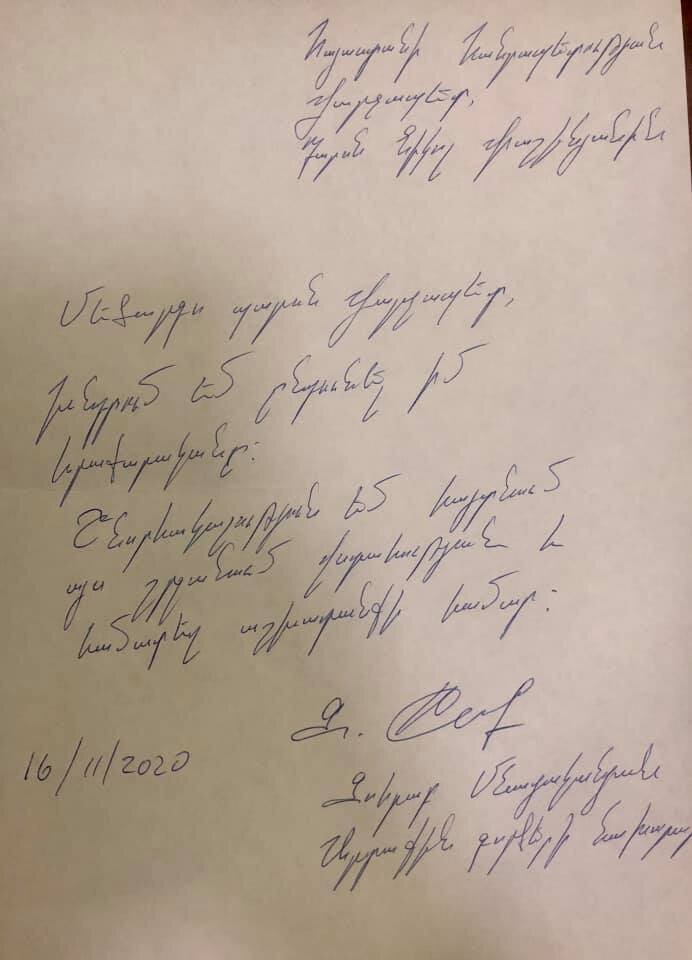 Հայաստանի Հանրապետության
վարչապետ,
Պարոն Նիկոլ Փաշինյանին
Մեծարգո պարոն վարչապետ,
Խնդրում եմ ընդունել իմ
հրաժարականը:
Շնորհակալություն եմ հայտնում
այս շրջանում վստահության և
համատեղ աշխատանքի համար:
Զ.
16/11/2020
Զոհրաբ Մնացականյան
Արտաքին գործերի նախարար